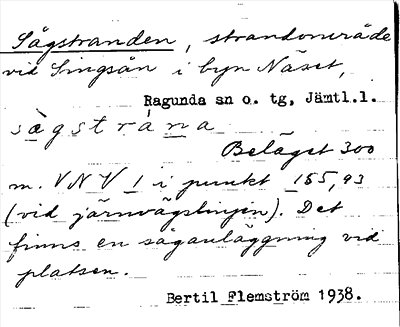 Sågstranden, strandområde
vid Singsån i byn Näset,
Ragunda sn o. tg, Jämtl.l.
sàgstràna
Beläget 300
m. VNV 1 i punkt 155,93
(vid järnvägslinjen). Det
finns en såganläggning vid
platsen.
Bertil Flemström 1938.